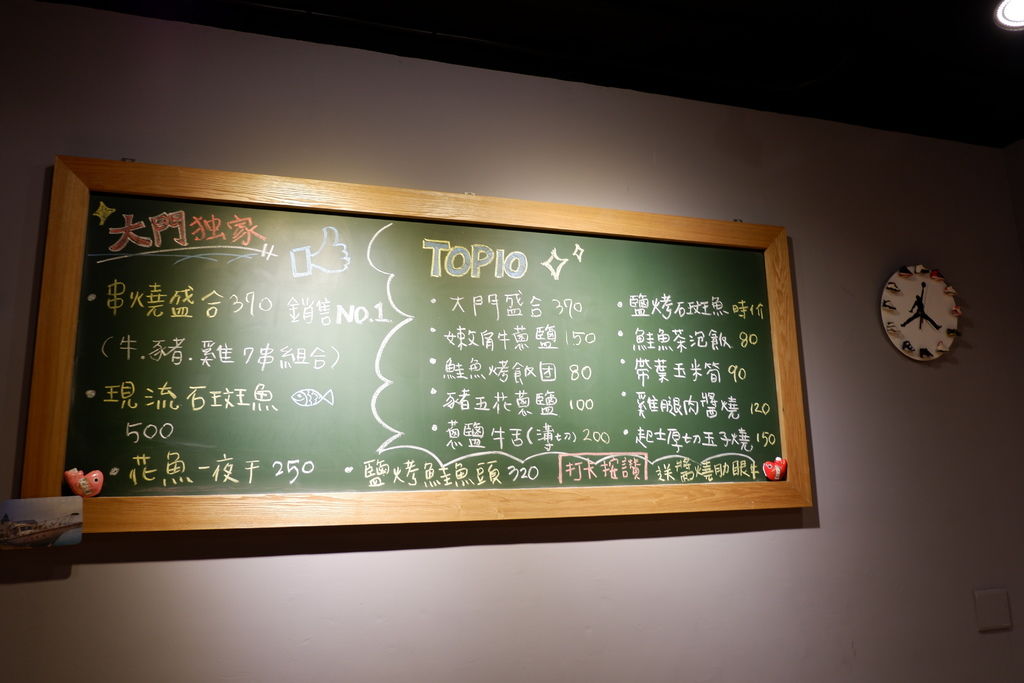 大門独家
串燒盛合370 銷售NO.1
(牛.豬.雞7串組合)
現流石斑魚
500
花魚一夜干250
鹽烤鮭魚頭320
TOP10
大門盛合370
嫩肩牛蔥鹽150
鮭魚烤飯团80
豬五花蔥鹽100
蔥鹽牛舌(薄切)200
鹽烤石斑魚時价
鮭魚茶泡飯80
帶葉玉米筍90
雞腿肉醬燒120
起士厚切玉子燒150
打卡按讚 送醬燒肋眼牛